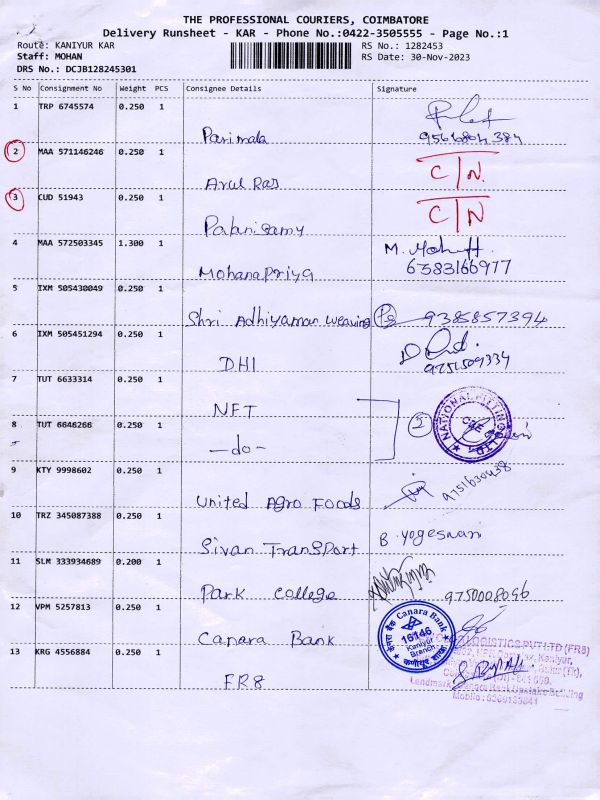 THE PROFESSIONAL COURIERS, COIMBATORE
Delivery Runsheet - KAR - Phone No.:0422-3505555 - Page No.:1
Route: KANIYUR KAR
RS No.: 1282453
Staff: MOHAN
RS Date: 30-Nov-2023
DRS No.: DCJB128245301
S No Consignment No Weight PCS Consignee Details Signature
1 TRP 6745574 0.250 1
Parimala 9566804384
2 MAA 571146246 0.250 1
Arul Raj C/N.
3 CUD 51943 0.250 1
Palanisamy C/N
4 MAA 572503345 1.300 1
Mohanapriya 6383166977
5 IXM 505430049 0.250 1
Shri Adhiyaman weaving 9385857394
6 IXM 505451294 0.250 1
DHI 9751509334
7 TUT 6633314 0.250 1
NFT
8 TUT 6646266 0.250 1
—do— 2
NATIONAL FITTING LTD
9 KTY 9998602 0.250 1
United Agro Foods 9751630438
10 TRZ 345087388 0.250 1
Sivan Transport B. Yogeswari
11 SLM 333934689 0.200 1
Park College 9750008096
12 VPM 5257813 0.250 1
Canara Bank
Canara Bank
16146
Kaniyur
Branch
13 KRG 4556884 0.250 1
FR8
LOGISTICS PVT LTD (FR8)
Kaniyur,